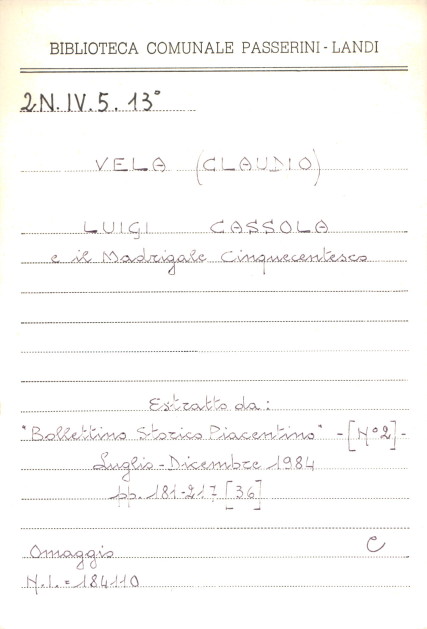 BIBLIOTECA COMUNALE PASSERINI - LANDI
2N.IV.5.13°
VELA (CLAUDIO)
LUIGI CASSOLA
e il Madrigale Cinquecentesco
Estratto da:
"Bollettino Storico Piacentino" - [N° 2] -
Luglio - Dicembre 1984
pp. 181-217 [36]
Omaggio C
N.I. = 184110